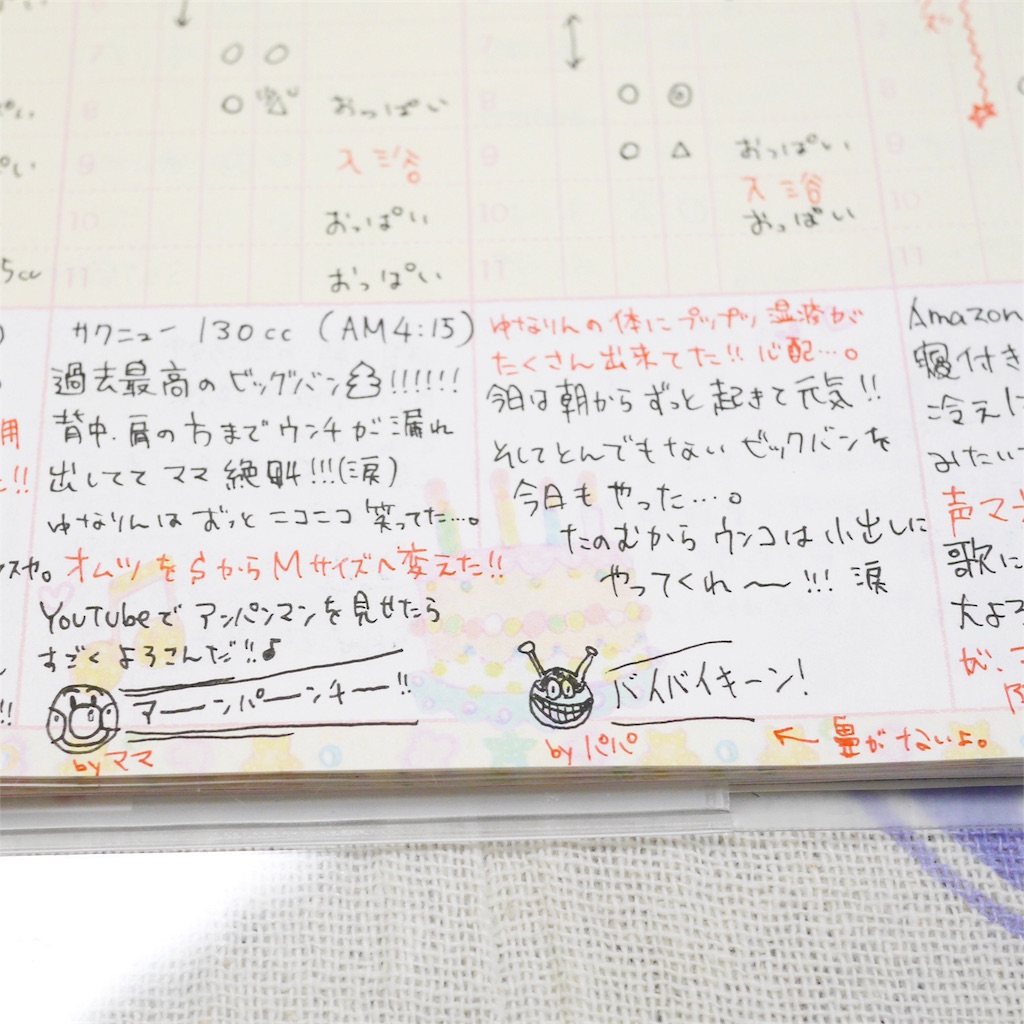 7
8
おっぱい
9
入浴
10
おっぱい
11
おっぱい
8
9
おっぱい
入浴
10
おっぱい
11
9
10
11
5cc
サクニュー 130cc (AM4:15)
過去最高のビッグバン!!!!!!
背中.肩の方までウンチが漏れ
出しててママ絶叫!!!(涙)
ゆなりんはずっとニコニコ笑ってた…。
オムツをSからMサイズへ変えた!!
YouTubeでアンパンマンを見せたら
すごくよろこんだ!!♪
アーーンパーーンチー!!
by ママ
ゆなりんの体にプップツ湿疹が
たくさん出来てた!!心配…。
今日は朝からずっと起きて元気!!
そしてとんでもないビックバンを
今日もやった…。
たのむからウンコは小出しに
やってくれ〜!!!涙
バイバイキーン!
by パパ
← 鼻がないよ。
Amazon
寝付き
冷えし
みたい
声マ
歌に
大よろ
が、